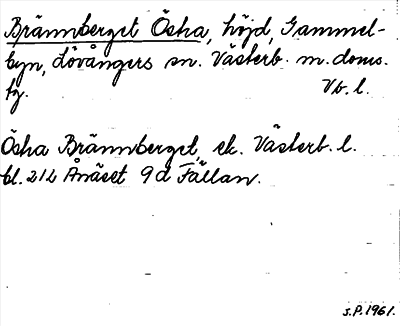 Brännberget Östra, höjd, Gammel-
byn, Lövångers sn. Västerb. n. doms.
tg. Vb. l.
Östra Brännberget, ek. Västerb. l.
bl. 212 Ånäset 9 d Fällan.
s.P.1961.